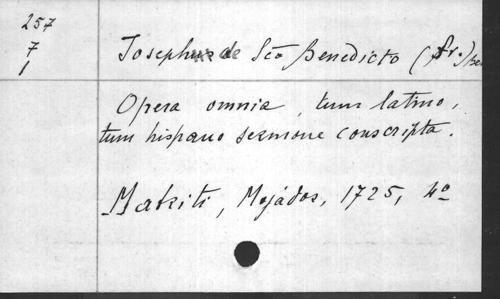 257
7
1
Josephus de Sto Benedicto (fr.)
Opera omnia, tum latino,
tum hispano sermone conscripta.
Matriti, Mojádos, 1725, 4º